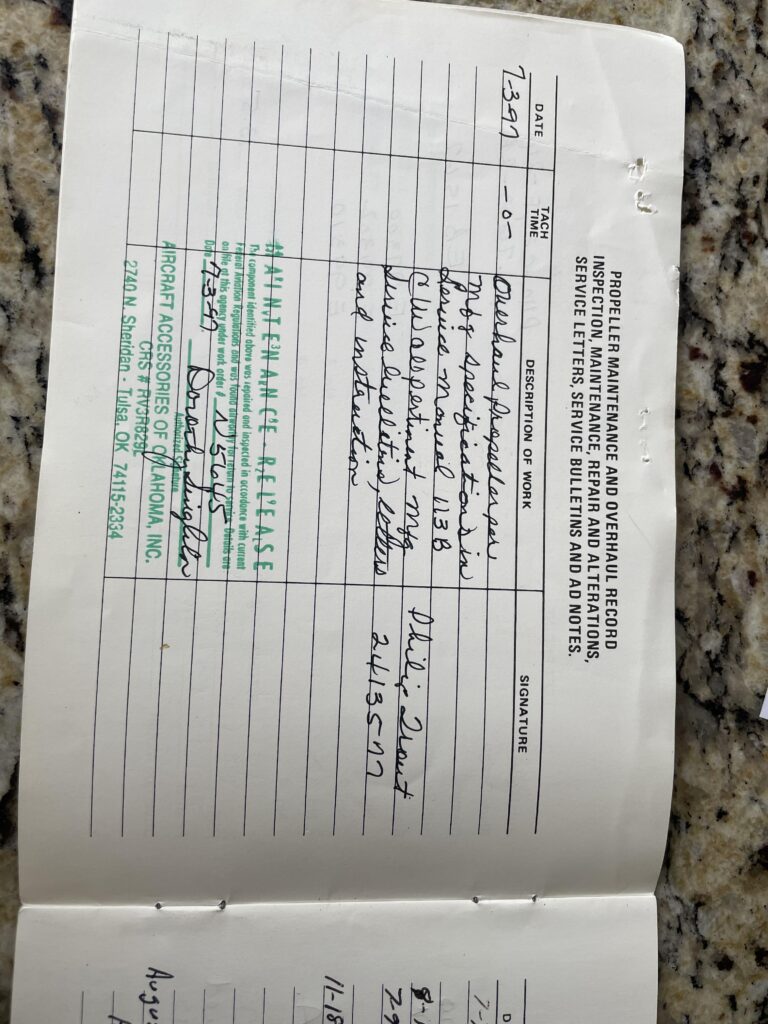 PROPELLER MAINTENANCE AND OVERHAUL RECORD
INSPECTION, MAINTENANCE, REPAIR AND ALTERATIONS,
SERVICE LETTERS, SERVICE BULLETINS AND AD NOTES.
DATE TACH TIME DESCRIPTION OF WORK SIGNATURE
7-3-97 -0- Overhaul propeller per
Mfg specifications in
Service Manual 113B
C/W all pertinent Mfg Philip Trout
Service bulletins, letters 2413577
and instruction
MAINTENANCE RELEASE
The component identified above was repaired and inspected in accordance with current
Federal Aviation Regulations and was found airworthy for return to service. Details are
on file at this agency under work order # N5645
Date 7-3-97 Dorothy
Authorized Signature
AIRCRAFT ACCESSORIES OF OKLAHOMA, INC.
CRS # RV3R629L
2740 N. Sheridan - Tulsa, OK 74115-2334
D
7-
8-
7-9
11-18
Augus